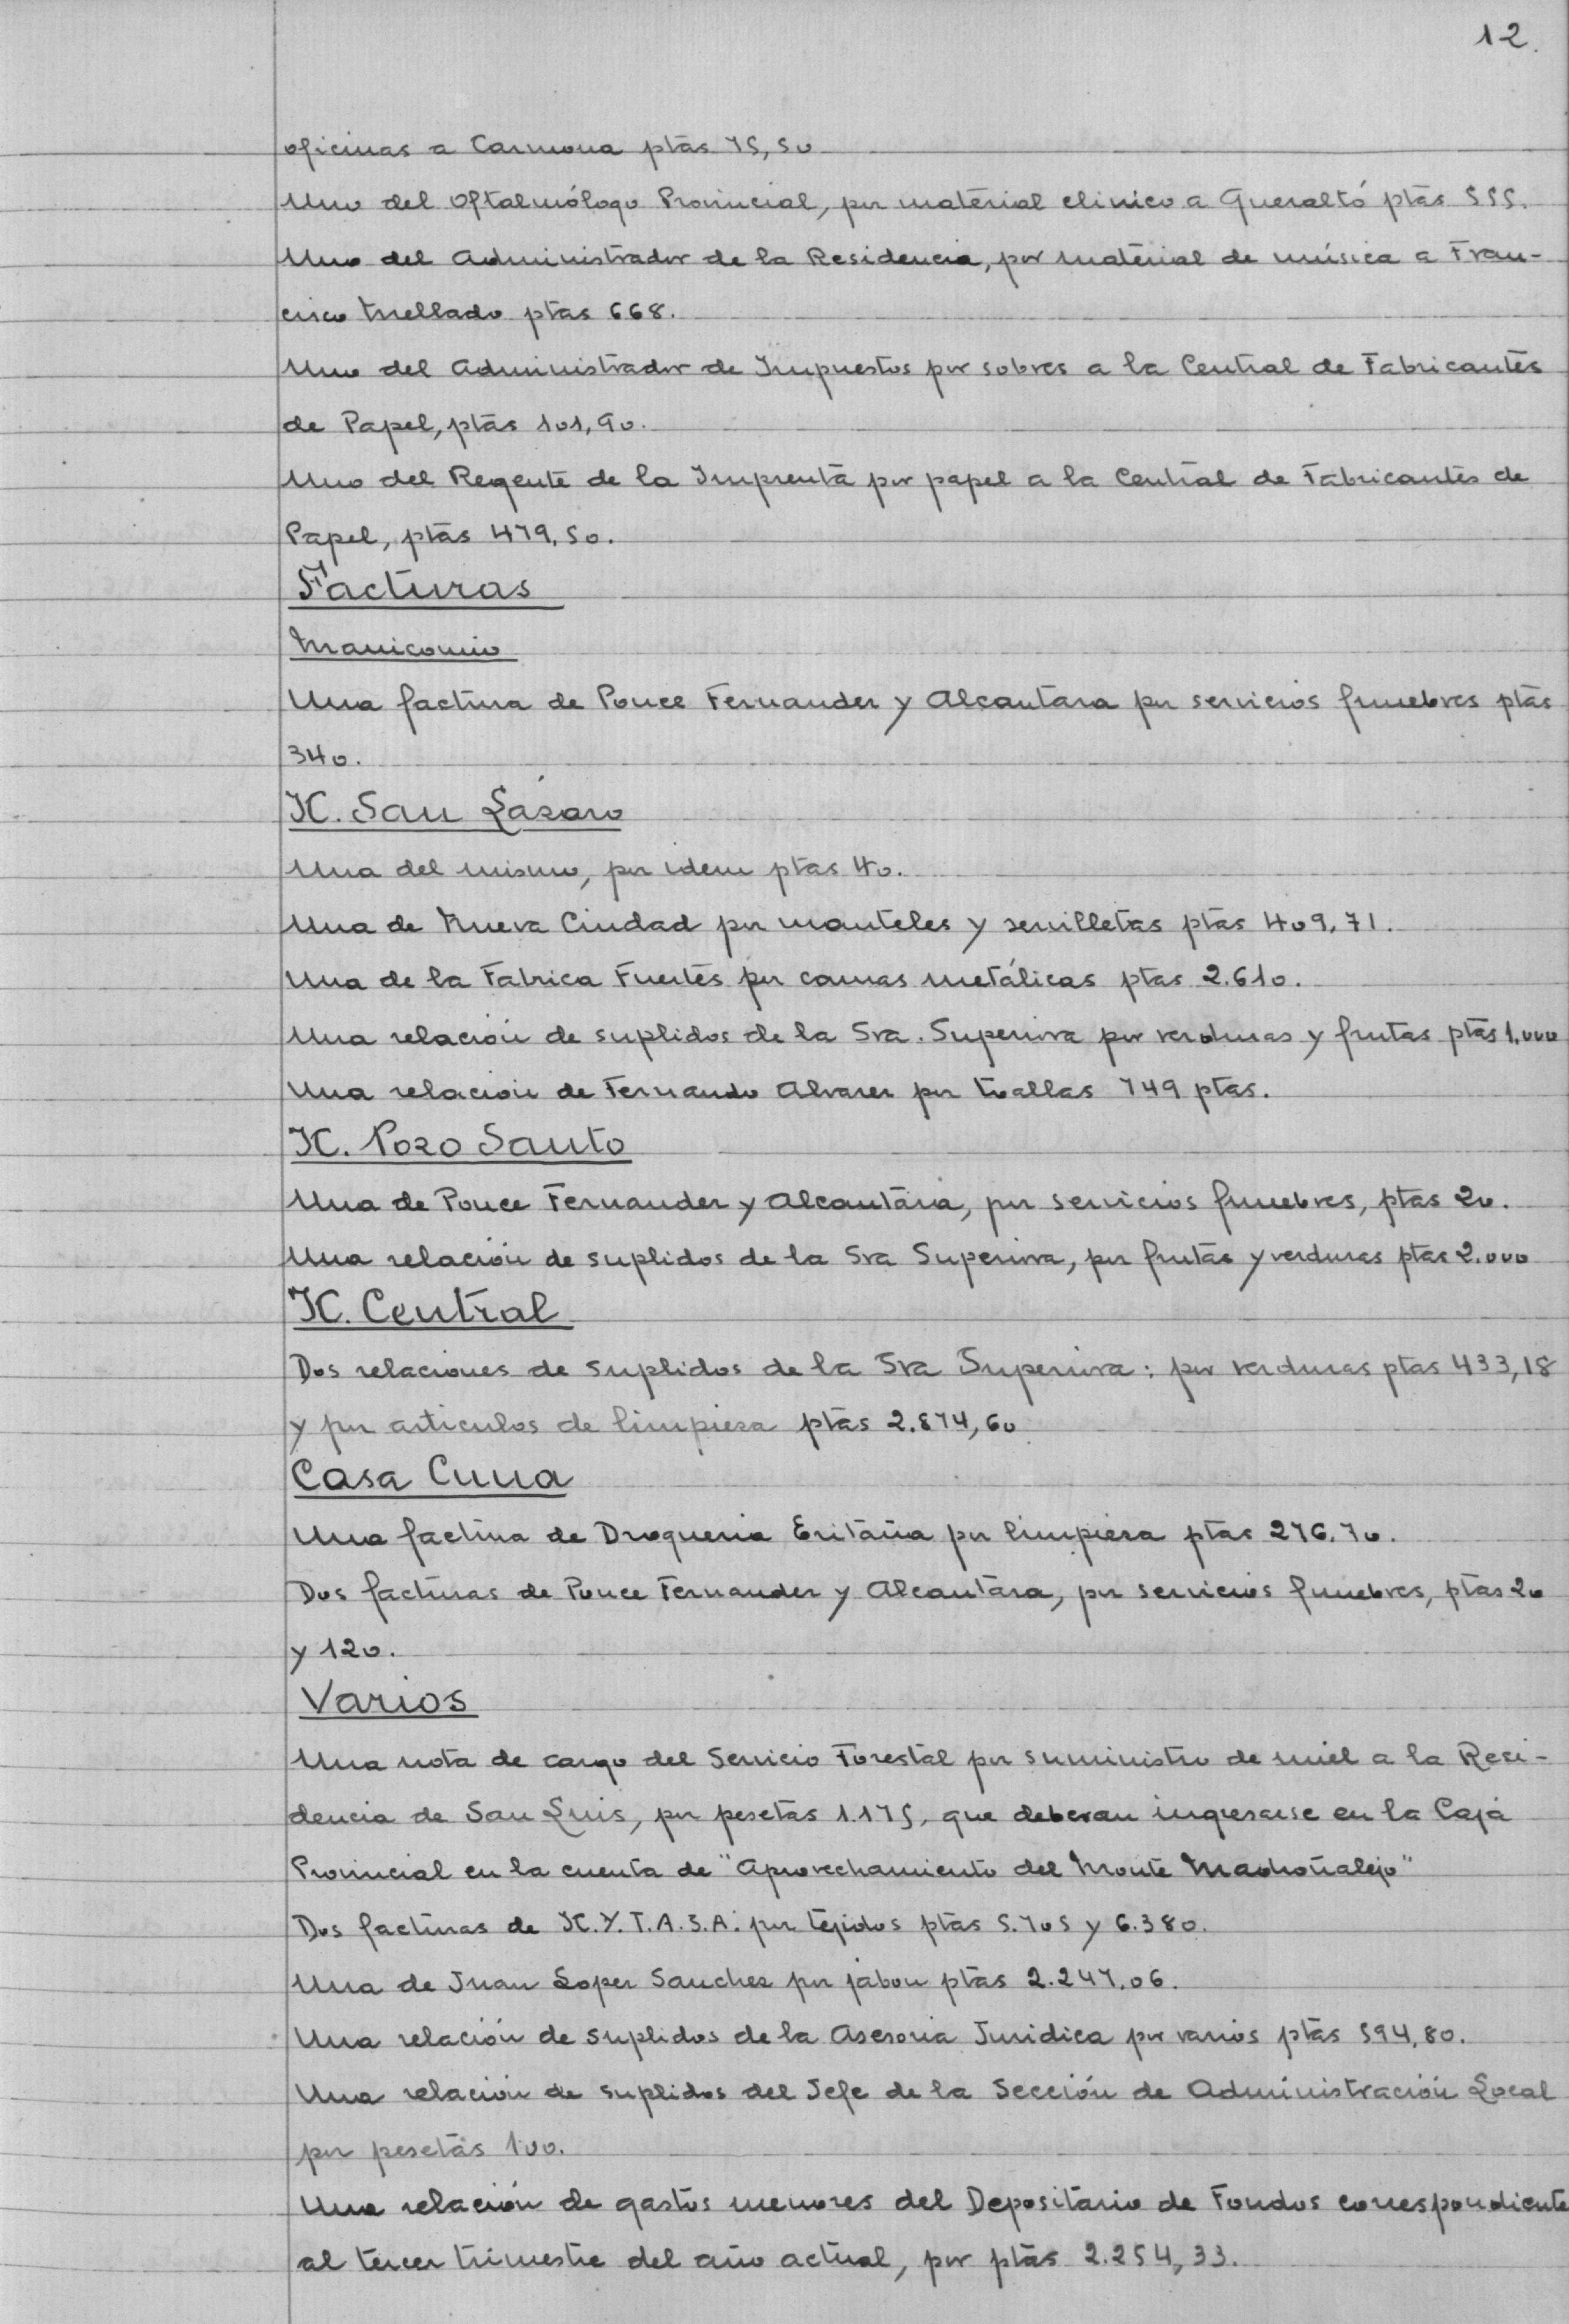 12.
oficinas a Carmona ptas 75,50
Uno del Oftalmólogo Provincial, por material clinico a Queraltó ptas 555.
Uno del Administrador de la Residencia, por material de música a Fran-
cisco Mellado ptas 668.
Uno del Administrador de Impuestos por sobres a la Central de Fabricantes
de Papel, ptas 101,90.
Uno del Regente de la Imprenta por papel a la Central de Fabricantes de
Papel, ptas 479,50.
Facturas
Manicomio
Una factura de Ponce Fernandez y Alcantara por servicios funebres ptas
340.
H. San Lázaro
Una del mismo, por idem ptas 40.
Una de Nueva Ciudad por manteles y servilletas ptas 409,71.
Una de la Fabrica Fuertes por camas metálicas ptas 2.610.
Una relación de suplidos de la Sra. Superiora por verduras y frutas ptas 1.000
Una relación de Fernando Alvarez por toallas 749 ptas.
H. Pozo Santo
Una de Ponce Fernandez y Alcantara, por servicios funebres, ptas 20.
Una relación de suplidos de la Sra Superiora, por frutas y verduras ptas 2.000
H. Central
Dos relaciones de suplidos de la Sra Superiora: por verduras ptas 433,18
y por articulos de limpieza ptas 2.874,60
Casa Cuna
Una factura de Drogueria Eritaña por limpieza ptas 276,70.
Dos facturas de Ponce Fernandez y Alcantara, por servicios funebres, ptas 20
y 120.
Varios
Una nota de cargo del Servicio Forestal por suministro de miel a la Resi-
dencia de San Luis, por pesetas 1.175, que deberan ingresarse en la Caja
Provincial en la cuenta de "Aprovechamiento del Monte Madroñalejo"
Dos facturas de H.Y.T.A.S.A. por tejidos ptas 5.705 y 6.380.
Una de Juan Lopez Sanchez por jabon ptas 2.247,06.
Una relación de suplidos de la Asesoria Juridica por varios ptas 594,80.
Una relación de suplidos del Jefe de la Sección de Administración Local
por pesetas 100.
Una relación de gastos menores del Depositario de Fondos correspondiente
al tercer trimestre del año actual, por ptas 2.254,33.